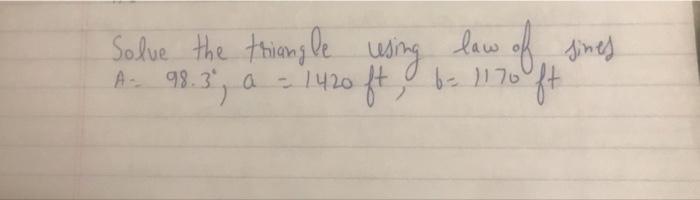 Solve the triangle using law of sines
A= 98.3°, a = 1420 ft, b= 1170 ft